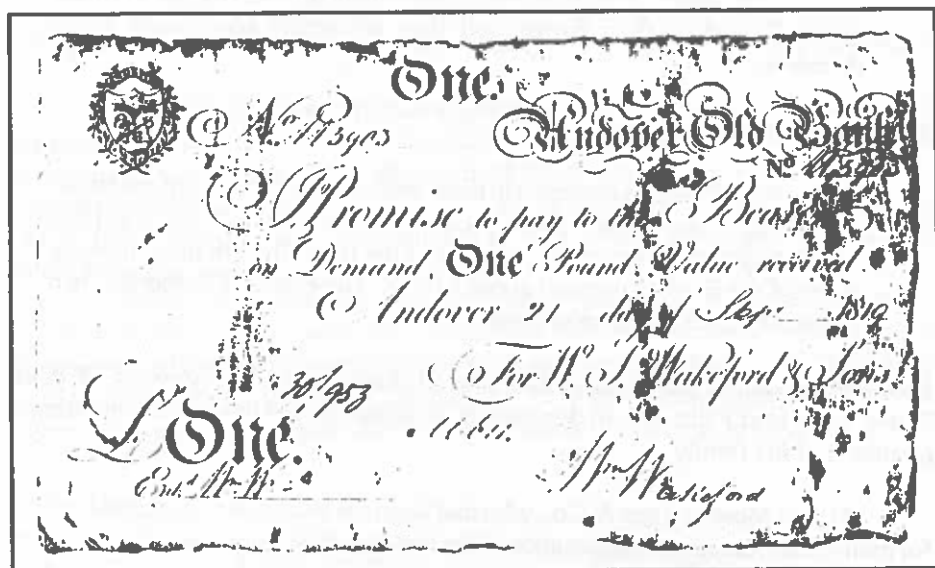 One.
Andover Old Bank
No
I Promise to pay to the Bearer
on Demand One Pound Value received
Andover 21 day of Sepr 1819
for Wakeford & Sons
£ One.
Entd Wm W
Wm Wakeford